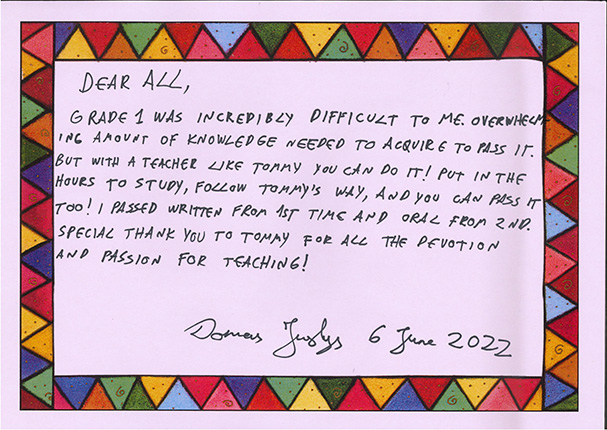 DEAR ALL,
GRADE 1 WAS INCREDIBLY DIFFICULT TO ME. OVERWHELM
ING AMOUNT OF KNOWLEDGE NEEDED TO ACQUIRE TO PASS IT.
BUT WITH A TEACHER LIKE TOMMY YOU CAN DO IT! PUT IN THE
HOURS TO STUDY, FOLLOW TOMMY'S WAY, AND YOU CAN PASS IT
TOO! I PASSED WRITTEN FROM 1ST TIME AND ORAL FROM 2ND.
SPECIAL THANK YOU TO TOMMY FOR ALL THE DEVOTION
AND PASSION FOR TEACHING!
Domas 6 June 2022